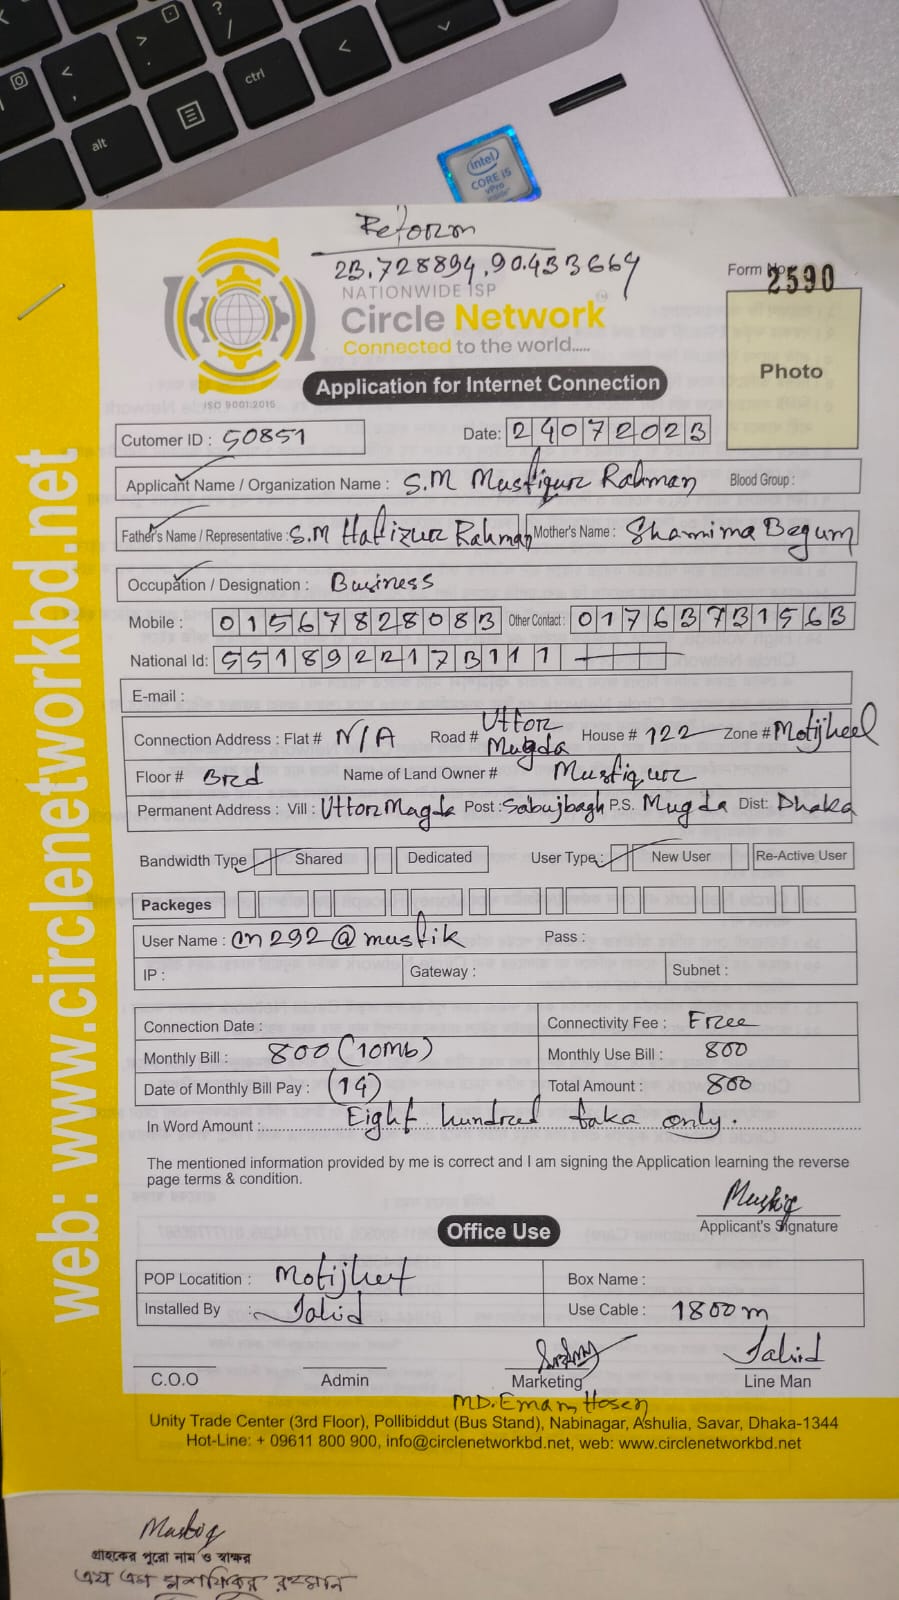 alt
ctrl
intel
CORE i5
vPro
Reform
23.728894,90.433664
NATIONWIDE ISP
Form No. 2590
Circle Network
Connected to the world.....
ISO 9001:2015
Photo
Application for Internet Connection
Cutomer ID : 50851 Date: 24072023
Applicant Name / Organization Name : S.M Musfiqur Rahman Blood Group :
Father's Name / Representative : S.M Hafizur Rahman Mother's Name : Shamima Begum
Occupation / Designation : Business
Mobile : 01567828083 Other Contact : 01763731563
National Id: 5518922173111
E-mail :
Connection Address : Flat # N/A Road # Uttor Mugda House # 122 Zone # Motijheel
Floor # 3rd Name of Land Owner # Musfiqur
Permanent Address : Vill : Uttor Magda Post : Sabujbagh P.S. Mugda Dist: Dhaka
Bandwidth Type Shared Dedicated User Type: New User Re-Active User
Packeges
User Name : cn292@musfik Pass :
IP : Gateway : Subnet :
Connection Date : Connectivity Fee : Free
Monthly Bill : 800 (10Mb) Monthly Use Bill : 800
Date of Monthly Bill Pay : (14) Total Amount : 800
In Word Amount : Eight hundred taka only.
The mentioned information provided by me is correct and I am signing the Application learning the reverse
page terms & condition.
Musfiq
Applicant's Signature
Office Use
POP Locatition : Motijheel Box Name :
Installed By : Jahid Use Cable : 1800m
Jahid
C.O.O Admin Marketing Line Man
MD. Emam Hosen
Unity Trade Center (3rd Floor), Pollibiddut (Bus Stand), Nabinagar, Ashulia, Savar, Dhaka-1344
Hot-Line: + 09611 800 900, info@circlenetworkbd.net, web: www.circlenetworkbd.net
web: www.circlenetworkbd.net
Musfiq
গ্রাহকের পুরো নাম ও স্বাক্ষর
এস এম মুশফিকুর রহমান